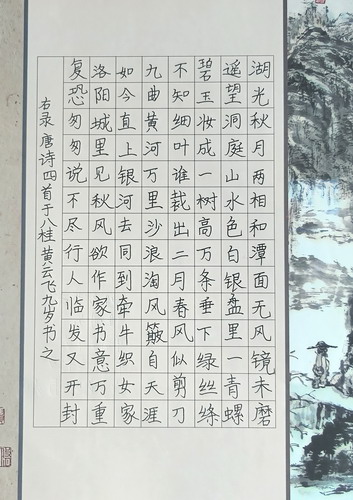 湖光秋月两相和潭面无风镜未磨
遥望洞庭山水色白银盘里一青螺
碧玉妆成一树高万条垂下绿丝绦
不知细叶谁裁出二月春风似剪刀
九曲黄河万里沙浪淘风簸自天涯
如今直上银河去同到牵牛织女家
洛阳城里见秋风欲作家书意万重
复恐匆匆说不尽行人临发又开封
右录唐诗四首于八桂黄云飞九岁书之